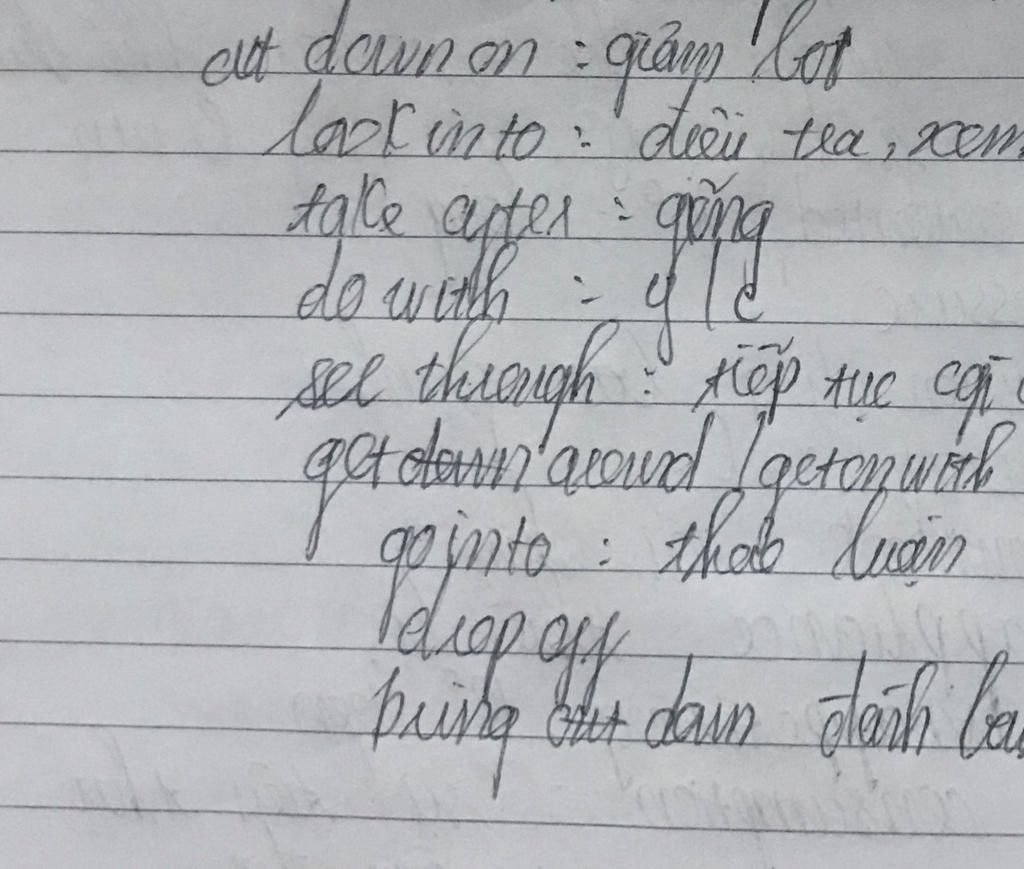 cut down on : giảm bớt
look into : điều tra, xem
take after : giống
do with :
see through : tiếp tục cgì
get down around / get on with
go into : thảo luận
drop off
bring out down đánh